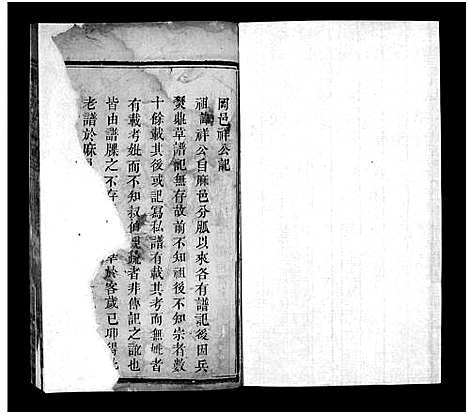 岡邑祥公記
祖諱祥公自麻邑分脈以來各有譜記後因兵
燹雖草譜記無存故前不知祖後不知宗者數
十餘載其後或記寫私譜有載其考而無妣者
有載考妣而不知叔伯親疏者非傳記之訛也
皆由譜牒之不存 幸於客歲己卯
老譜於麻